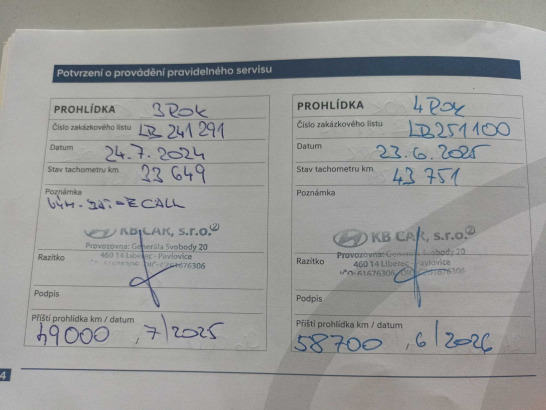 Potvrzení o provádění pravidelného servisu
PROHLÍDKA 3 ROK
Číslo zakázkového listu LB 241 291
Datum 24.7.2024
Stav tachometru km 33 649
Poznámka
E CALL
KB CAR, s.r.o.②
Provozovna: Generála Svobody 20
460 14 Liberec - Pavlovice
Razítko
Podpis
Příští prohlídka km / datum
49000 , 7/2025
PROHLÍDKA 4 ROK
Číslo zakázkového listu LB251100
Datum 23.6.2025
Stav tachometru km 43 751
Poznámka
KB CAR, s.r.o.②
Provozovna: Generála Svobody 20
460 14 Liberec - Pavlovice
Razítko
Podpis
Příští prohlídka km / datum
58700 , 6/2026
4